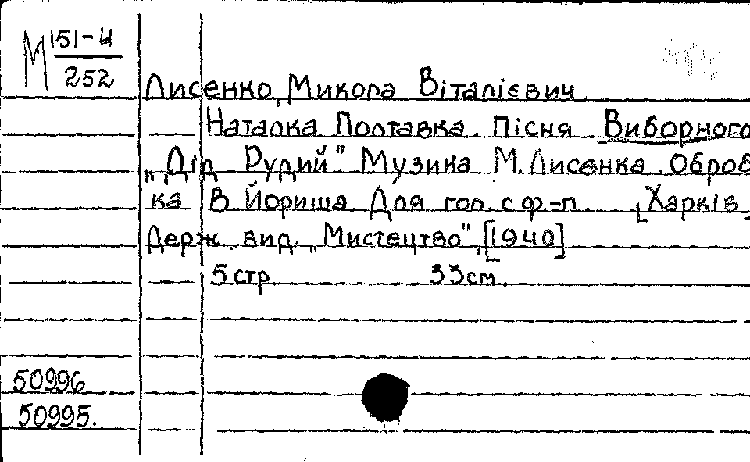 М 151-4
252
Лисенко, Микола Віталієвич
Наталка Полтавка. Пісня Виборного
„Дід Рудий". Музика М. Лисенка. Оброб
ка В. Йориша. Для гол. с ф-п. [Харків]
Держ. вид. „Мистецтво", [1940]
5 стр. 33 см.
50996
50995.